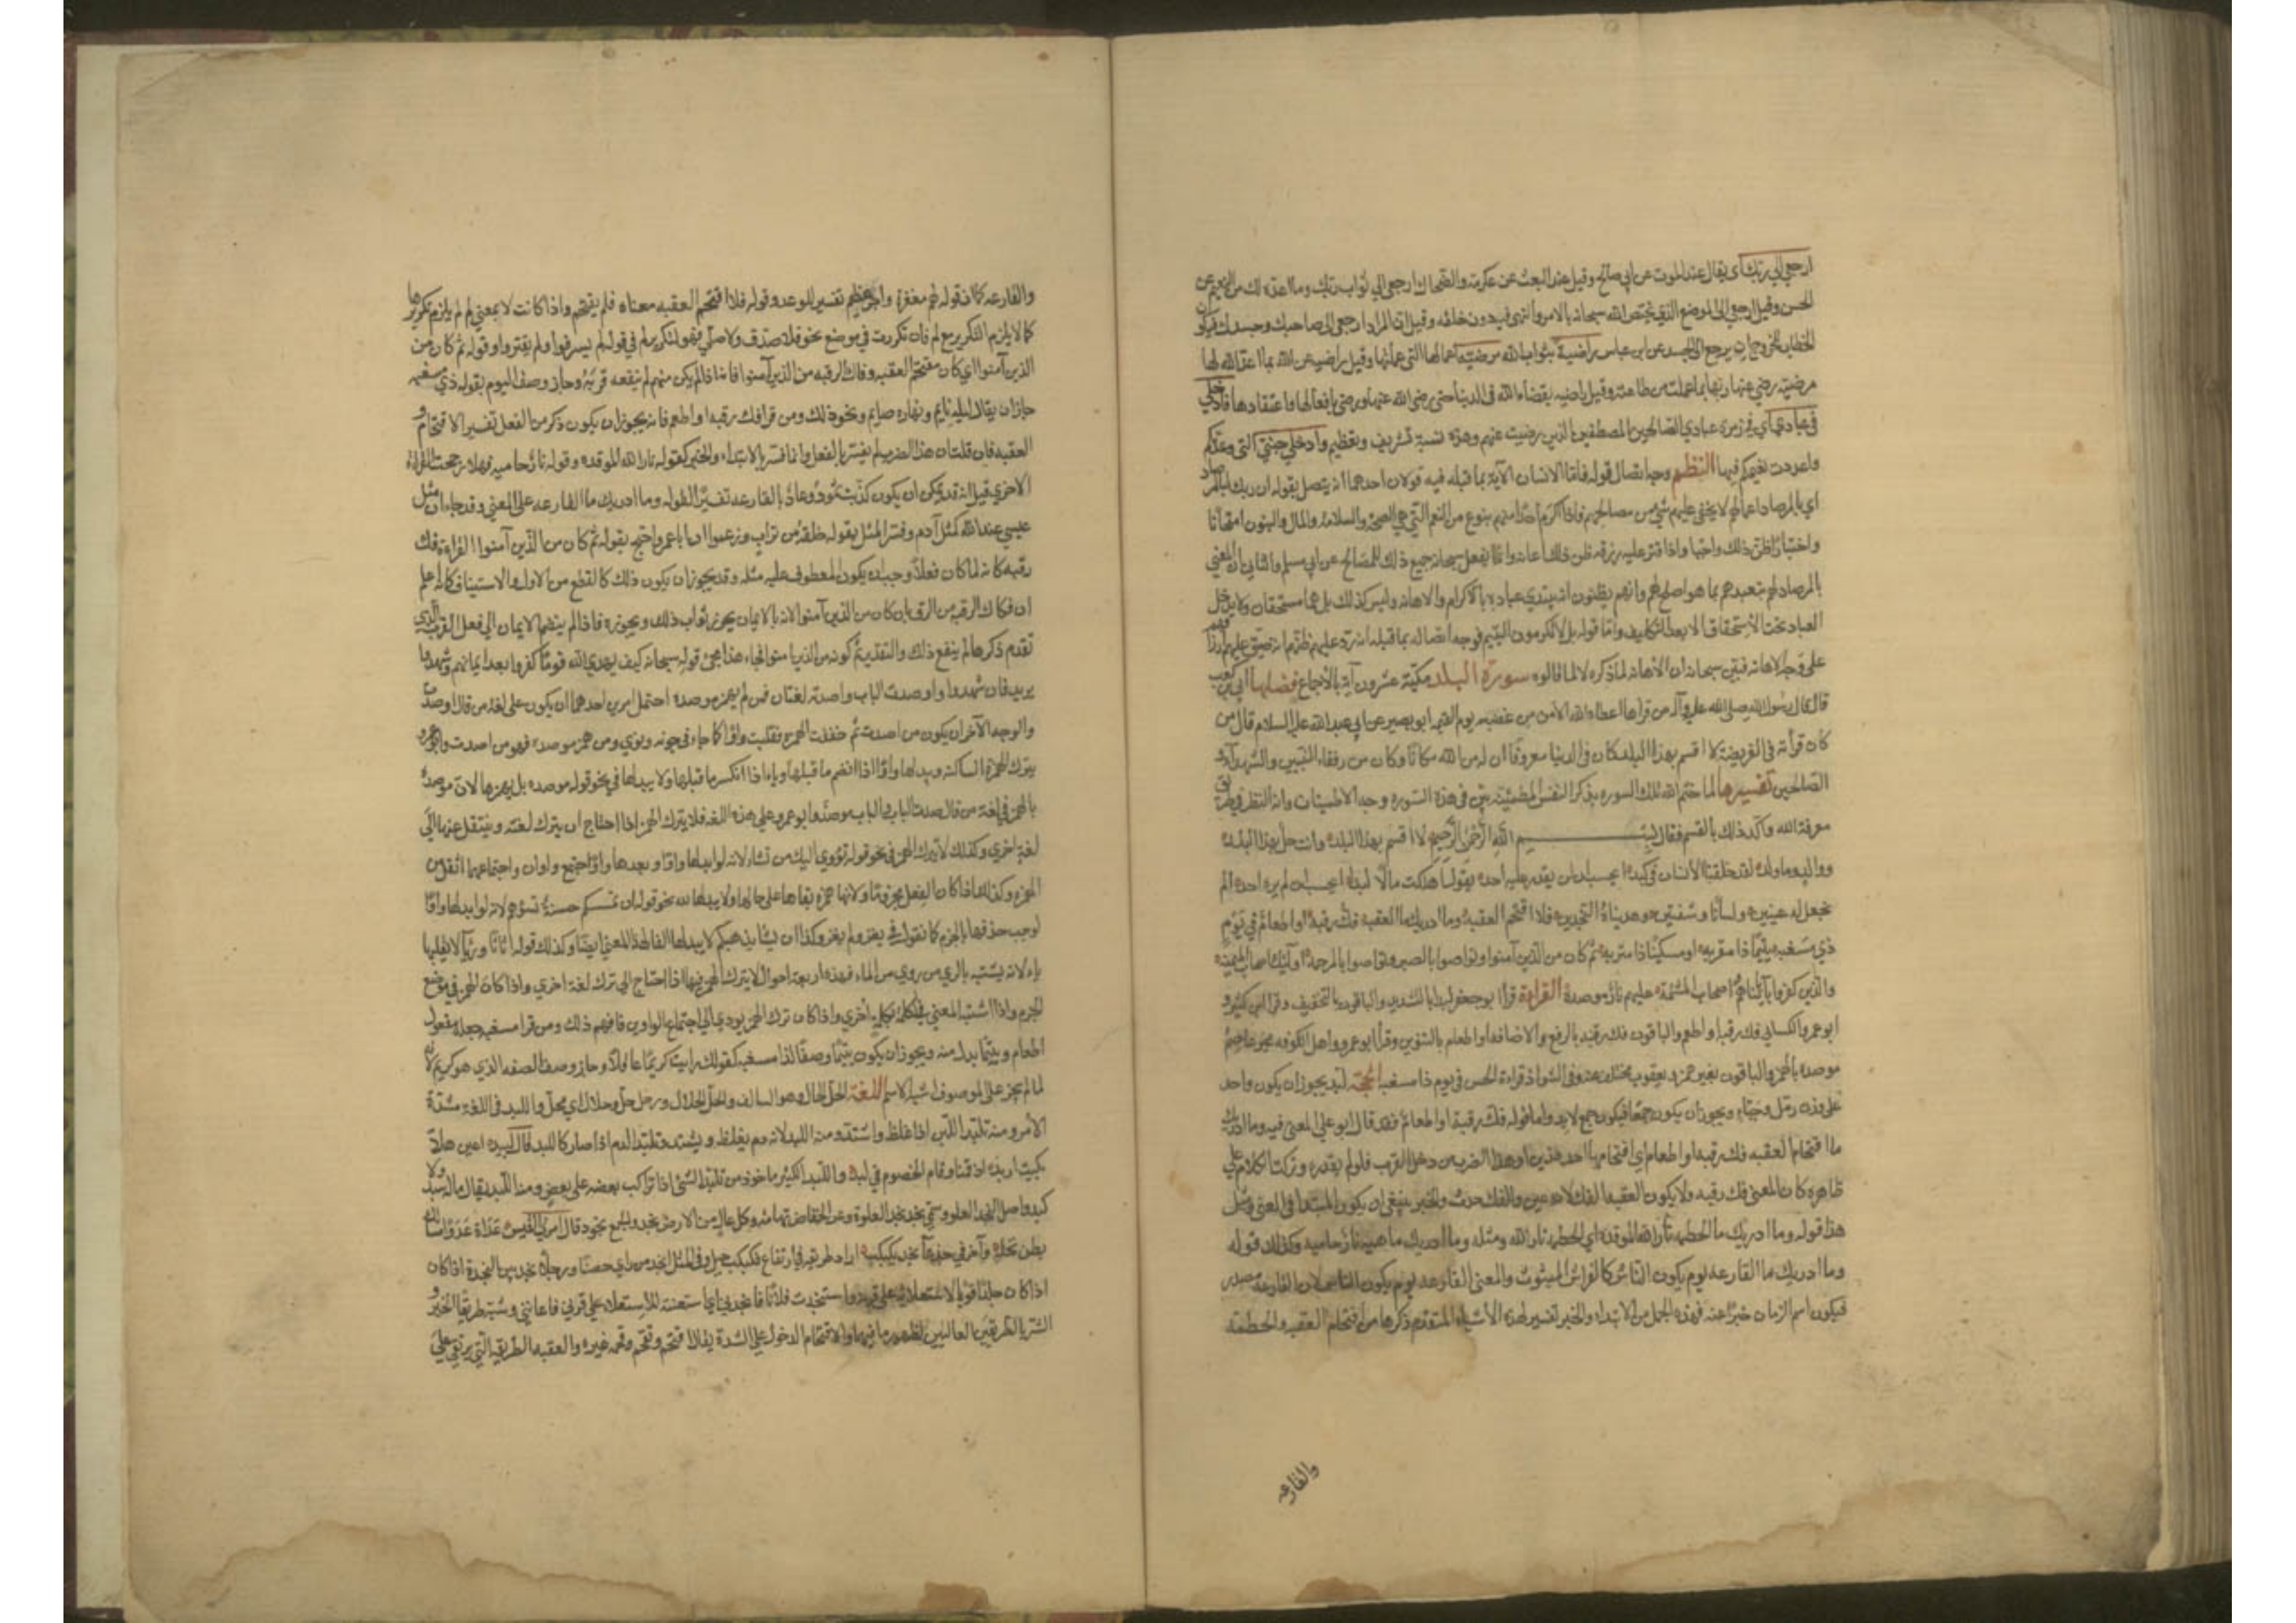 ارجعي الي ربك اي يقال عند الموت عن ابي صالح وقيل عند البعث عن عكرمة والضحاك ارجعي الي ثواب ربك وما اعده لك من النعيم عن
الحسن وقيل ارجعي الي الموضع الذي يختص الله سبحانه بالامر والنهي فيه دون خلقه وقيل ان المراد ارجعي الي صاحبك وجسدك فيكون
الخطاب للروح ان يرجع الي الجسد عن ابن عباس راضية بثواب الله مرضية اعمالها التي عملتها وقيل راضية عن الله بما اعد الله لها
مرضية رضي عنها ربها بما عملت من طاعته وقيل راضيه بقضاء الله في الدنيا حتى رضي الله عنها ورضي بافعالها واعتقادها فادخلي
في عبادي اي في زمرة عبادي الصالحين المصطفين الذين رضيت عنهم وهذه نسبة تشريف وتعظيم وادخلي جنتي التي وعدتكم
واعددت نعيمكم فيها النظم وجه اتصال قوله فاما الانسان الآية بما قبله فيه قولان احدهما انه يتصل بقوله ان ربك لبالمرصاد
اي بالمرصاد لاعمالهم لا يخفى عليه شيء من مصالحهم فاذا اكرم احدا منهم بنوع من النعم التي هي الصحة والسلامة والمال والبنون امتحانا
واختبارا ظن ذلك واجبا واذا قتر عليه رزقه ظن ذلك اهانة وانما يفعل سبحانه جميع ذلك للمصالح عن ابي مسلم والثاني ان المعني
بالمرصاد لهم يتعبدهم بما هو اصلح لهم وانهم يظنون انه يبتدي عباده بالاكرام والاهانة وليس كذلك بل هما مستحقان ولا يدخل
العباد تحت الاستحقاق الا بعد التكليف واما قوله بل لا تكرمون اليتيم فوجه اتصاله بما قبله انه رد عليهم ظنهم انه ضيق عليهم
على وجه الاهانه فبين سبحانه ان الاهانه لما ذكره لا لما قالوه سورة البلد مكية عشرون آية بالاجماع فضلها ابي بن كعب
قال قال رسول الله صلى الله عليه وآله من قرأها اعطاه الله الامن من غضبه يوم القيمة ابو بصير عن ابي عبد الله عليه السلام قال من
كان قراءته في الفريضة لا اقسم بهذا البلد كان في الدنيا معروفا ان له من الله مكانا وكان من رفقاء النبيين والشهداء و
الصالحين تفسيرها لما ختم الله تلك السوره بذكر النفس المطمئنة بين في هذه السوره وجه الاطمينان وانه النظر في طريق
معرفة الله واكد ذلك بالقسم فقال بسم الله الرحمن الرحيم لا اقسم بهذا البلد وانت حل بهذا البلد
ووالد وما ولد لقد خلقنا الانسان في كبد ايحسب ان لن يقدر عليه احد يقول اهلكت مالا لبدا ايحسب ان لم يره احد الم
نجعل له عينين ولسانا وشفتين وهديناه النجدين فلا اقتحم العقبة وما ادريك ما العقبة فك رقبة او اطعام في يوم
ذي مسغبة يتيما ذا مقربه او مسكينا ذا متربه ثم كان من الذين آمنوا وتواصوا بالصبر وتواصوا بالمرحمة اوليك اصحاب الميمنه
والذين كفروا بآياتنا هم اصحاب المشئمة عليهم نار موصدة القراءة قرأ ابو جعفر لبدا بالتشديد والباقون بالتخفيف وقرا ابن كثير و
ابو عمرو والكسائي فك رقبة او اطعم والباقون فك رقبة بالرفع والاضافة او اطعام بالتنوين وقرأ ابو عمرو واهل الكوفه غير عاصم
موصدة بالهمز والباقون بغير همز ويعقوب مختلف عنه وفي الشواذ قراءة الحسن في يوم ذا مسغبة الحجة لبد يجوز ان يكون واحدا
على وزن زمل وجباء ويجوز ان يكون جمعا فيكون جمع لابد واما قوله فك رقبة او اطعام فقد قال ابو علي المعنى فيه وما ادريك
ما اقتحام العقبه فك رقبة او اطعام اي اقتحامها احد هذين او هذا الضرب من فعل القرب فلو لم يقدره وتركت الكلام على
ظاهره كان المعنى فك رقبه ولا يكون العقبة الفك لانه عين والفك حدث والخبر ينبغي ان يكون المبتدأ في المعنى ومثل
هذا قوله وما ادريك ما الحطمة نار الله الموقدة اي الحطمة نار الله ومثله وما ادريك ما هيه نار حاميه وكذلك قوله
وما ادريك ما القارعه يوم يكون الناس كالفراش المبثوث والمعنى القارعه يوم يكون الناس لان القارعة مصدر
فيكون اسم الزمان خبرا عنه فهذه الجمل من الابتداء والخبر تفسير لهذه الاشياء المتقدم ذكرها من اقتحام العقبه والحطمة
والقارعه
والقارعه كما ان قوله لهم مغفرة واجر عظيم تفسير للوعد وقوله فلا اقتحم العقبه معناه فلم يقتحم واذا كانت لا بمعني لم لم يلزم تكريرها
كما لا يلزم التكرير مع لم فان تكررت في موضع نحو فلا صدق ولا صلي فهو لتكرير لم في قوله لم يسرفوا ولم يقتروا وقوله ثم كان من
الذين آمنوا اي كان مقتحم العقبه وفاك الرقبه من الذين آمنوا فانه اذا لم يكن منهم لم ينفعه قربه وجاز وصف اليوم بقوله ذي مسغبه
جاز ان يقال ليله نايم ونهاره صايم ونحو ذلك ومن قرا فك رقبه او اطعم فانه يجوز ان يكون ذكر من الفعل تفسير الاقتحام و
العقبه فان قلت ان هذا الضرب لم يفسر بالفعل وانما فسر بالابتداء والخبر كقوله نار الله الموقدة وقوله نار حاميه فهلا رجحت القراءة
الاخرى قيل انه قد يمكن ان يكون كذبت ثمود وعاد بالقارعه تفسيرا لقوله وما ادريك ما القارعه على المعني وقد جاء ان مثل
عيسي عند الله كمثل آدم وفسر المثل بقوله خلقه من تراب وزعموا ان ابا عمرو احتج بقوله ثم كان من الذين آمنوا لقراءة فك
رقبه كانه لما كان فعلا وجب ان يكون المعطوف عليه مثله وقد يجوز ان يكون ذلك كالقطع من الاول والاستيناف كانه اعلم
ان فكاك الرقبه من الرق بان كان من الذين آمنوا لانه بالايمان يحوز ثواب ذلك ويحوزه فاذا لم ينضم الايمان الي فعل القرب الذي
تقدم ذكرها لم ينفع ذلك والتقدير ثم كونه من الذين امنوا فجاء هذا مجئ قوله سبحانه كيف يهدي الله قوما كفروا بعد ايمانهم وشهدوا
يريد فان شهدوا واوصدت الباب واصدته لغتان فمن لم يهمز موصدة احتمل امرين احدهما ان يكون على لغة من قال اوصدت
والوجه الآخر ان يكون من اصدت ثم خففت الهمزة فقلبت واوا كما جاء في جونه وتوي ومن همز موصدة فهو من اصدت وابو عمرو
يترك الهمزة الساكنة ويبدلها واوا اذا انضم ما قبلها وياء اذا انكسر ما قبلها ولا يبدلها في نحو قوله موصده بل يهمزها لان موصدة
بالهمز في لغة من قال اصدت الباب والباب موصد وابو عمرو على هذه اللغه فلا يترك الهمز اذا احتاج ان يترك لغته وينتقل عنها الي
لغة اخري وكذلك لا يترك الهمز في نحو قوله تؤوي اليك من تشاء لانه لو ابدلها واوا وبعدها واو اجتمع واوان واجتماعهما اثقل من
الهمزه وكذلك اذا كان الفعل مجزوما ولانها همزه بقاها على حالها ولا يبدلها نحو قوله ان تمسسكم حسنة تسؤهم لانه لو ابدلها واوا
لوجب حذفها بالجزم كما تقول في يغزو لم يغز وكذا ان يشأ يذهبكم لا يبدلها الفا لهذا المعنى ايضا وكذلك قوله اثاثا ورئيا لا يقلبها
ياء لانه يشتبه بالري من روي من الماء فهذه اربعة احوال لا يترك الهمز فيها اذا احتاج الي ترك لغة اخري واذا كان الهمز في موضع
الجزم واذا اشتبه المعني في كلمة بكلمة اخري واذا كان ترك الهمز يودي الي اجتماع الواوين فافهم ذلك ومن قرا مسغبه جعله مفعول
اطعام ويتيما بدل منه ويجوز ان يكون يتيما وصفا لذا مسغبه كقولك رايت كريما عاقلا وجاز وصف الصفه الذي هو كريم لانه
لما لم يجز على الموصوف اشبه الاسم اللغة الحل الحال وهو الساكن والحل الحلال ورجل حل وحلال اي محل والكبد في اللغة شدة
الأمر ومنه تكبد اللبن اذا غلظ واشتد ومنه الكبد لانه دم يغلظ ويشتد وتكبد الدم اذا صار كالكبد قال لبيد اعين هلا
بكيت اربد اذ قمنا وقام الخصوم في كبد واللبد الكثير ماخوذ من تلبد الشئ اذا تراكب بعضه على بعض ومنه اللبد يقال ماله سبد ولا
لبد واصل النجد العلو وسمي نجد نجدا لعلوه عن انخفاض تهامه وكل عال من الارض نجد والجمع نجود قال امرؤ القيس غداة غدوا فسالك
بطن نخلة وآخر منهم جازع نجد كبكب اراد طريقه في ارتفاع وكبكب جبل وفي المثل انجد من راي حضنا ورجل نجد بين النجدة اذا كان
اذا كان جلدا قويا لاستعلائه على قرنه واستنجدت فلانا فانجدني اي استعنته للاستعلاء علي قرني فاعانني وشبه طريقا الخير و
الشر بالطريقين العاليين لظهور ما فيهما والاقتحام الدخول علي الشدة يقال اقتحم وتقحم وقحمه غيره والعقبه الطريقة التي يرتقي علي